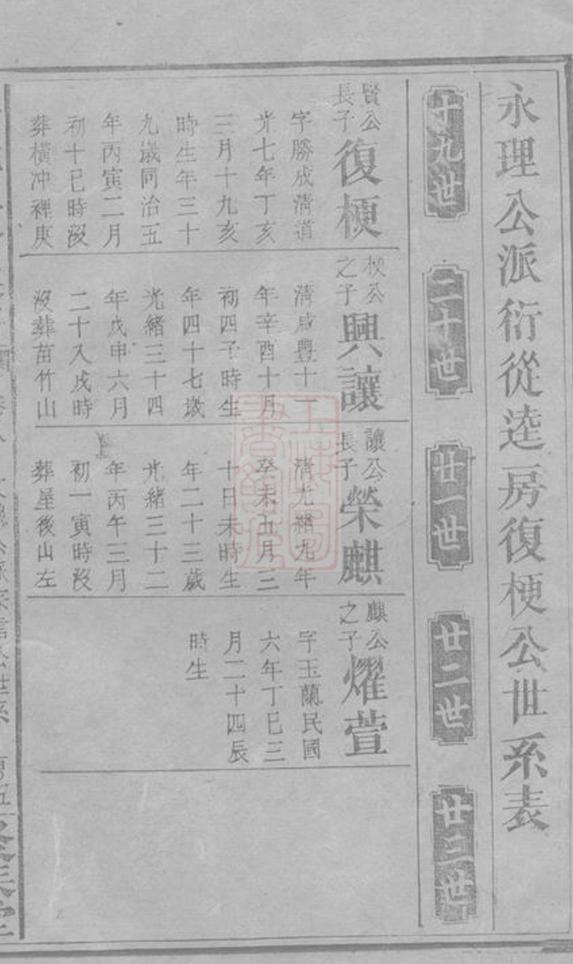 永理公派衍從逵房復梗公世系表
十九世
二十世
廿一世
廿二世
廿三世
賢公
長子
復梗
字勝成清道
光七年丁亥
三月十九亥
時生年三十
九歲同治五
年丙寅二月
初十巳時沒
葬橫冲裡庚
梗公
之子
興讓
清咸豐十一
年辛酉十月
初四子時生
年四十七歲
光緒三十四
年戊申六月
二十入戌時
沒葬苗竹山
讓公
長子
榮麒
清光緒九年
癸未五月三
十日未時生
年二十三歲
光緒三十二
年丙午三月
初一寅時沒
葬屋後山左
麒公
之子
燿萱
字玉蘭民國
六年丁巳三
月二十四辰
時生